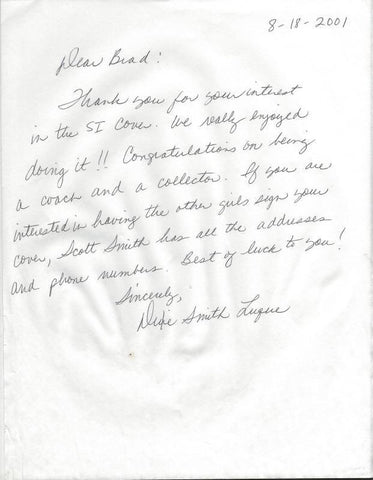 8-18-2001
Dear Brad:
Thank you for your interest
in the SI Cover. We really enjoyed
doing it!! Congratulations on being
a coach and a collector. If you are
interested in having the other girls sign your
cover, Scott Smith has all the addresses
and phone numbers. Best of luck to you!
Sincerely,
Dixie Smith Luque